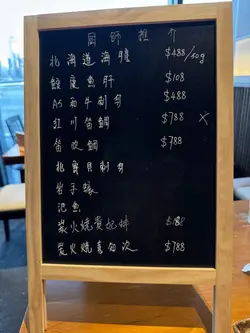 廚師推介
北海道海膽 $488/50g
鮟鱇魚肝 $108
A5和牛刺身 $488
紅川笛鯛 $788 X
笛吹鯛 $788
北寄貝刺身
岩手蠔
池魚
炭火燒喜知次 $788